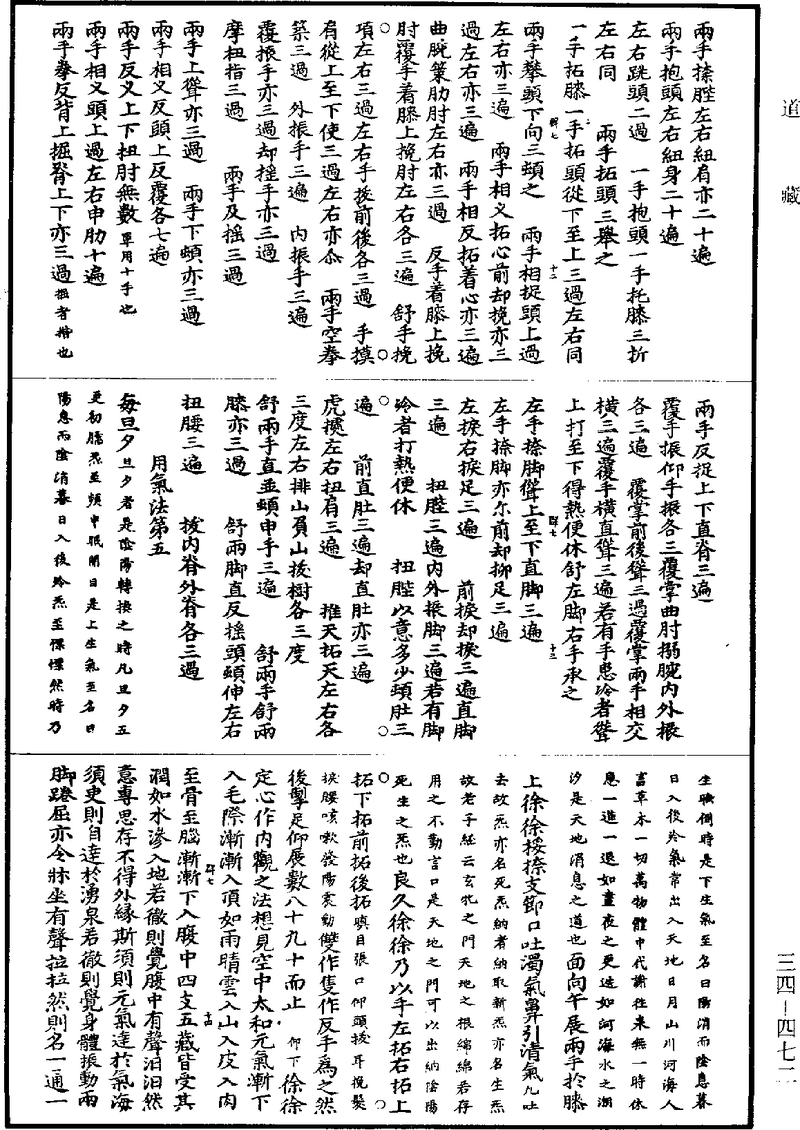 道藏
兩手捺䏶左右紐肩亦二十遍
兩手抱頭左右紐身二十遍
左右跣頭二過　一手抱頭一手托膝三折
左右同　兩手拓頭三舉之
一手拓膝一手拓頭從下至上三過左右同
群七　十二
兩手攀頭下向三頓之　兩手相捉頭上過
左右亦三遍　兩手相义拓心前却挽亦三
過左右亦三遍　兩手相反拓着心亦三遍
曲腕築肋肘左右亦三過　反手着膝上挽
肘覆手着膝上挽肘左右各三遍　舒手挽
項左右三過左右手拔前後各三過　手摸
肩從上至下使三過左右亦　兩手空拳
築三過　外振手三遍　內振手三遍
覆振手亦三過却搖手亦三過
摩杻指三過　兩手及搖三過
兩手上聳亦三過　兩手下頓亦三過
兩手相义反頭上反覆各七遍
兩手反义上下扭肘無數單用十手也
兩手相义頭上過左右申肋十遍
兩手拳反背上掘脊上下亦三過掘者揩也
兩手反捉上下直脊三遍
覆手振仰手振各三覆掌曲肘搦腕內外振
各三遍　覆掌前後聳三過覆掌兩手相交
橫三遍覆手橫直聳三遍若有手患冷者聳
上打至下得熱便休舒左脚右手承之
群七　十三
左手捺脚聳上至下直脚三遍
右手捺脚亦尔前却抑足三遍
左捩右捩足三遍　前捩却捩三遍直脚
三遍　扭䏶三遍內外振脚三遍若有脚
冷者打熱便休　扭䏶以意多少頓肚三
遍　前直肚三遍却直肚亦三遍
虎攩左右扭肩三遍　推天拓天左右各
三度左右排山負山拔樹各三度
舒兩手直並頓申手三遍　舒兩手舒兩
膝亦三過　舒兩脚直反搖頭頓伸左右
扭腰三遍　拔內脊外脊各三過
用氣法第五
每旦夕旦夕者是陰陽轉換之時凡旦夕五
更初暖炁至頻申眠開目是上生氣至名曰
陽息而陰消暮日入後冷炁至懍懍然時乃
坐睡倒時是下生氣至名曰陽消而陰息暮
日入後冷氣常出入天地日月山川河海人
畜草木一切萬物體中代謝往來無一時休
息一進一退如晝夜之更迭如河海水之潮
汐是天地消息之道也面向午展兩手於膝
上徐徐按捺支節口吐濁氣鼻引清氣凡吐
去故炁亦名死炁納者納取新炁亦名生炁
故老子經云玄牝之門天地之根綿綿若存
用之不勤言口是天地之門可以出納陰陽
死生之炁也良久徐徐乃以手左拓右拓上
拓下拓前拓後拓瞋目張口仰頭拔耳挽髮
挾腰咳嗽發陽振動雙作隻作反手為之然
後掣足仰展數八十九十而止　仰下徐徐
定心作內觀之法想見空中太和元氣漸下
入毛際漸漸入頂如雨晴雲入山入皮入肉
至骨至腦漸漸下入腹中四支五藏皆受其
群七　十四
潤如水滲入地若徹則覺腹中有聲汩汩然
意專思存不得外緣斯須則元氣達於氣海
須臾則自達於湧泉若徹則覺身體振動兩
脚踡屈亦令牀坐有聲拉拉然則名一通一
三四—四七二